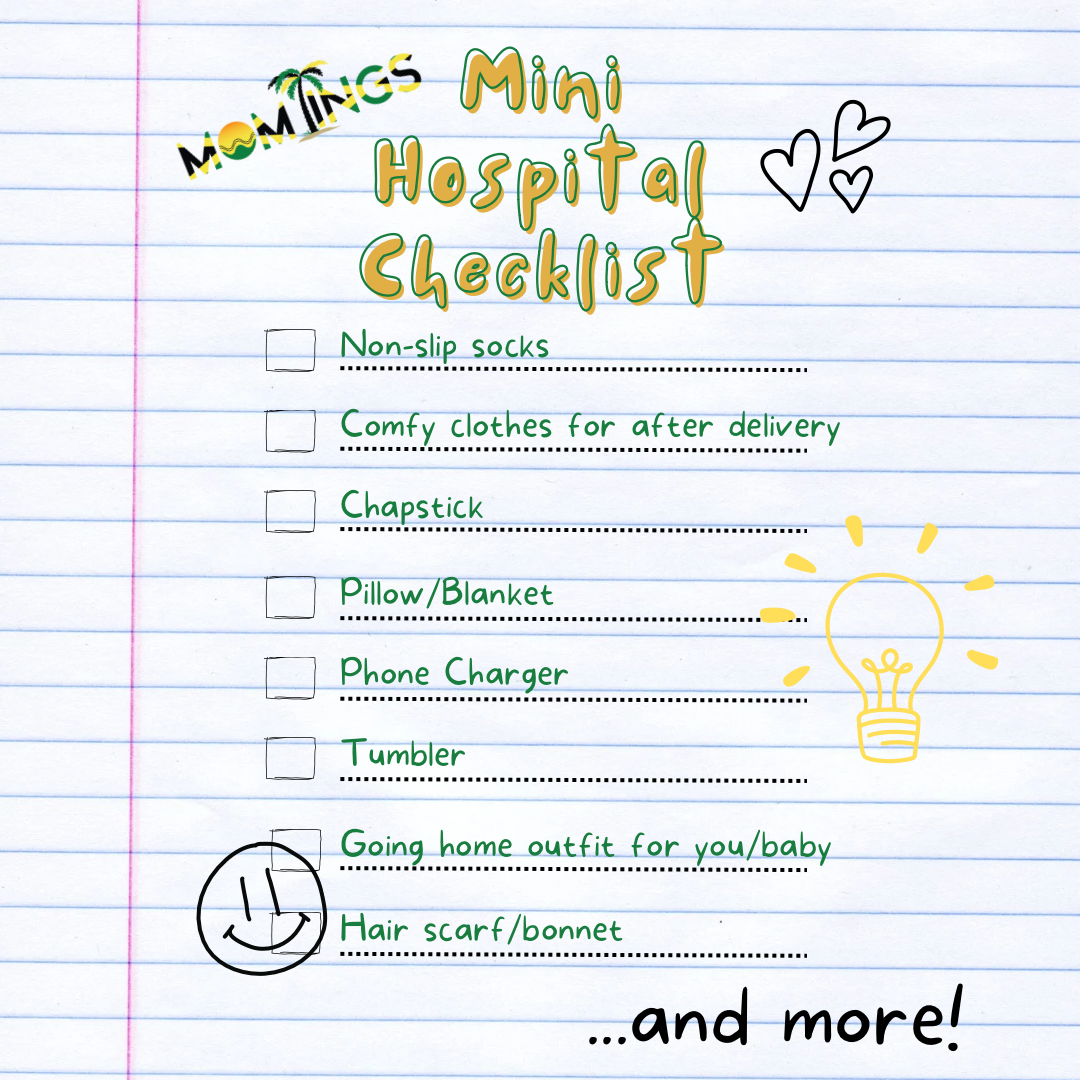 MOMTINGS
Mini
Hospital
Checklist
Non-slip socks
Comfy clothes for after delivery
Chapstick
Pillow/Blanket
Phone Charger
Tumbler
Going home outfit for you/baby
Hair scarf/bonnet
...and more!